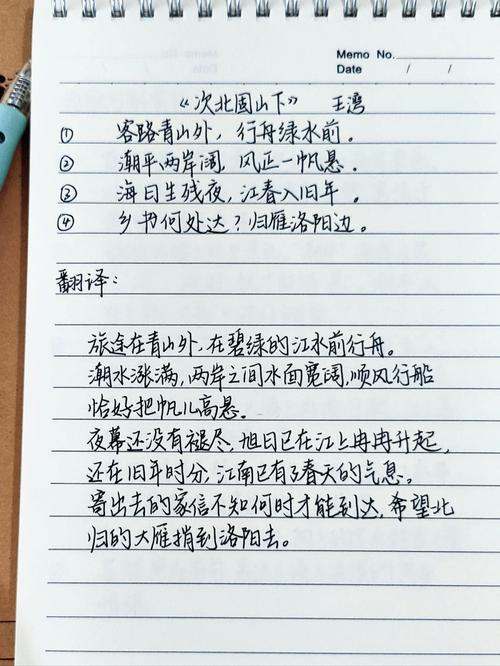 Memo No.
Date / /
《次北固山下》 王湾
① 客路青山外，行舟绿水前。
② 潮平两岸阔，风正一帆悬。
③ 海日生残夜，江春入旧年。
④ 乡书何处达？归雁洛阳边。
翻译：
旅途在青山外，在碧绿的江水前行舟。
潮水涨满，两岸之间水面宽阔，顺风行船
恰好把帆儿高悬。
夜幕还没有褪尽，旭日已在江上冉冉升起，
还在旧年时分，江南已有了春天的气息。
寄出去的家信不知何时才能到达，希望北
归的大雁捎到洛阳去。